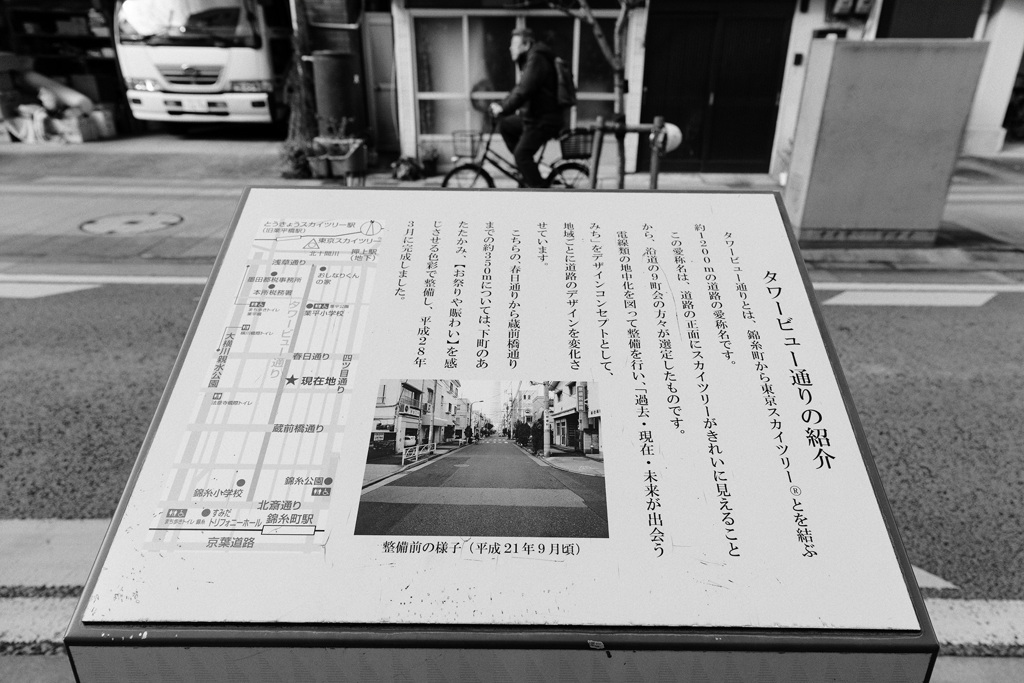 タワービュー通りの紹介
タワービュー通りとは、錦糸町から東京スカイツリー®とを結ぶ
約1200mの道路の愛称名です。
この愛称名は、道路の正面にスカイツリーがきれいに見えること
から、沿道の9町会の方々が選定したものです。
電線類の地中化を図って整備を行い、「過去・現在・未来が出会う
みち」をデザインコンセプトとして、
地域ごとに道路のデザインを変化さ
せています。
こちらの、春日通りから蔵前橋通り
までの約350mについては、下町のあ
たたかみ、【お祭りや賑わい】を感
じさせる色彩で整備し、平成28年
3月に完成しました。
とうきょうスカイツリー駅
(旧業平橋駅)
東京スカイツリー
北十間川
押上駅
(地下)
浅草通り
墨田都税事務所
本所税務署
おしなりくん
の家
業平小学校
タワービュー通り
大横川親水公園
春日通り
四ツ目通り
★現在地
蔵前橋通り
錦糸公園
錦糸小学校
北斎通り
すみだ
トリフォニーホール
錦糸町駅
京葉道路
整備前の様子（平成21年9月頃）